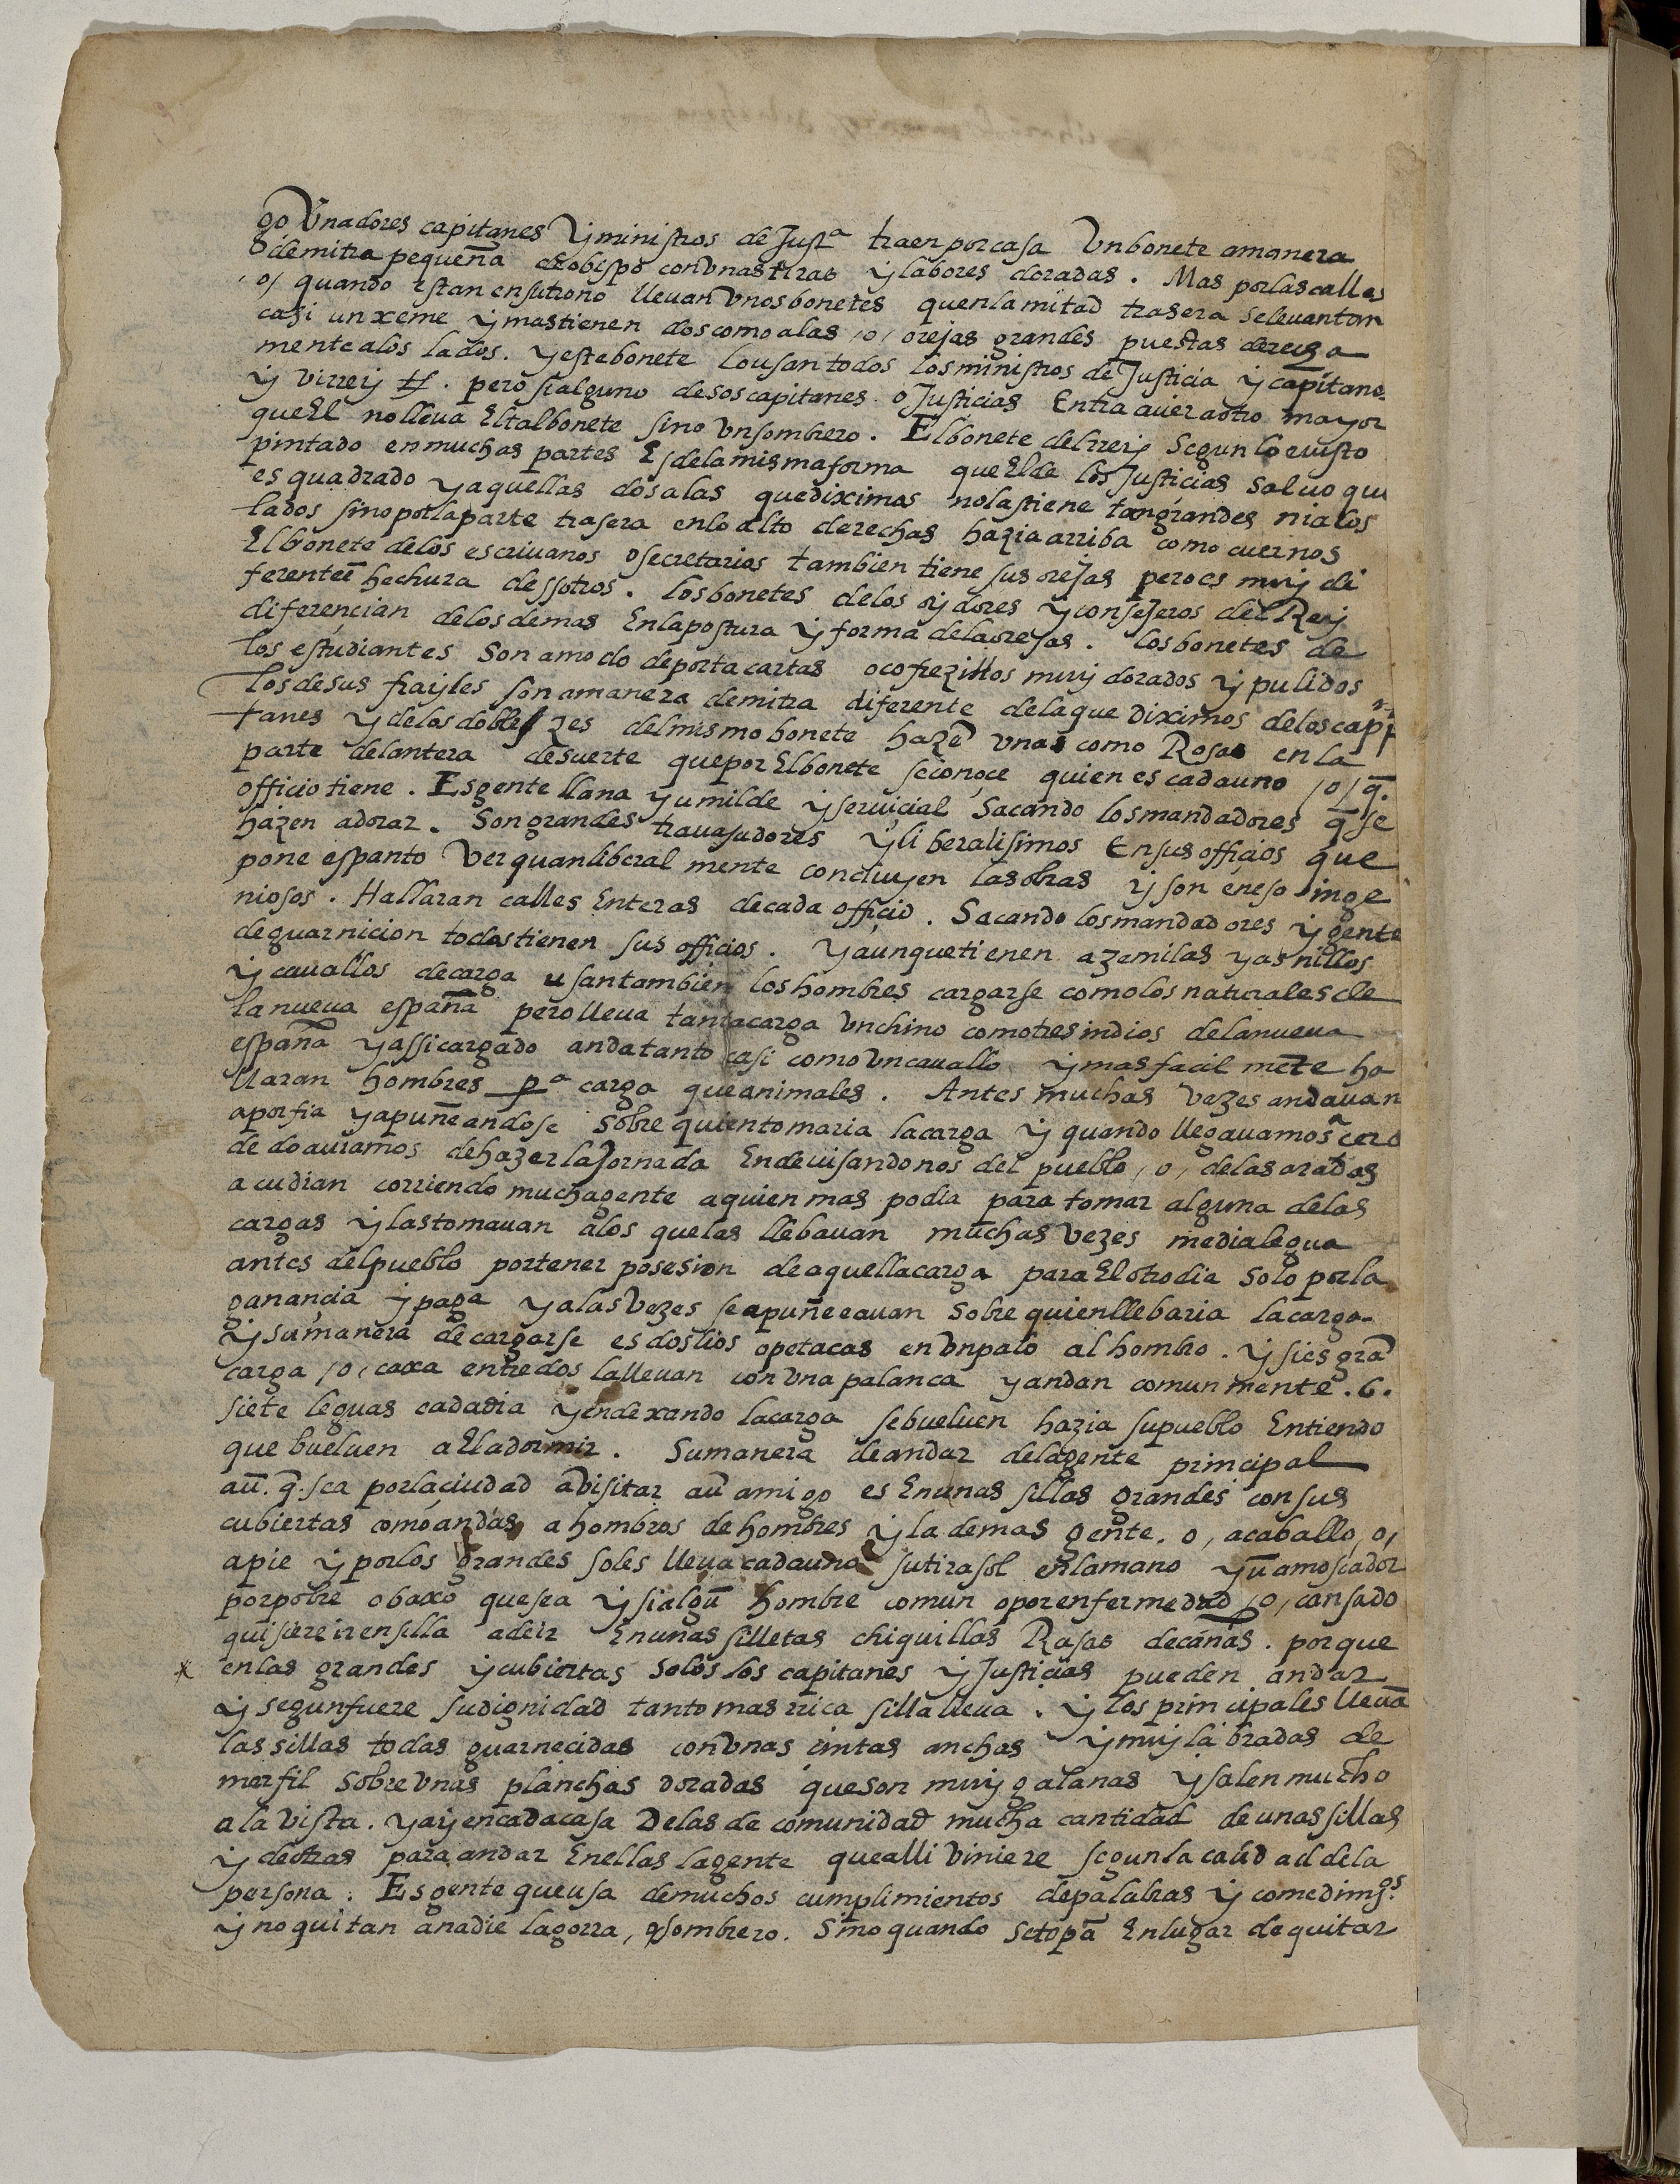 governadores capitanes y ministros de Just.ª traen por casa Un bonete a manera
de mitra pequeña de obispo con Unas tiras y labores doradas. Mas por las calles
,o, quando estan en su trono lleuan Vnos bonetes quen la mitad trasera se leuantan
casi un xeme y mas tienen dos como alas ,o, orejas grandes puestas derecha
mente a los lados. y este bonete lo usan todos los ministros de Justicia y capitane
y Virrey. pero si alguno desos capitanes o Justicias Entra a uer a otro mayor
que El no lleua El tal bonete sino un sombrero. El bonete del rrey Segun lo e uisto
pintado en muchas partes Es de la misma forma que El de los Justicias saluo que
es quadrado y aquellas dos alas que diximos no las tiene tan grandes ni a los
lados sino por la parte trasera en lo alto derechas hazia arriba como cuernos
El bonete de los escriuanos o secretarios tambien tiene sus orejas pero es muy di
ferente hechura dessotros. los bonetes de los oydores y consejeros del Rey
diferencian de los demas En la postura y forma de la orejas. los bonetes de
los estudiantes Son a modo de porta cartas o cofrezillos muy dorados y pulidos
los de sus frayles son a manera de mitra diferente de la que diximos de los capi
tanes y de los doblezes del mismo bonete hazē unas como Rosas en la
parte delantera de suerte que por El bonete se conoçe quien es cada uno ,o, q̄.
officio tiene. Es gente llana y umilde y seruicial Sacando los mandadores q̄ se
hazen adorar. Son grandes trauajadores y liberalisimos En sus officios que
pone espanto Ver quan liberal mente concluyen las obras y son en eso inge
niosos. Hallaran calles Enteras de cada officio. Sacando los mandadores y gente
de guarnicion todos tienen sus officios. y aunque tienen azemilas y asnillos
y cauallos de carga usan tambien los hombres cargarse como los naturales de
la nueua españa pero lleua tanta carga Un chino como tres indios de la nueua
españa y assi cargado anda tanto casi como Un cauallo y mas facil mēte ha
llaran hombres p.ª carga que animales. Antes muchas vezes andauan
a porfia y apuñeandose Sobre quien tomaria la carga y quando llegauamos cerca
de do auiamos de hazer la Jornada En deuisandonos del pueblo ,o, de las aradas
acudian corriendo mucha gente a quien mas podia para tomar alguna de las
cargas y las tomauan a los que las llebauan muchas Vezes media legua
antes del pueblo por tener posesion de aquella carga para El otro dia solo por la
ganancia y paga y a las Vezes se apuñeeauan sobre quien llebaria la carga.
y su manera de cargarse es dos lios o petacas en Un palo al hombro. y si es grā
carga ,o, caxa entre dos la lleuan con Una palanca y andan comun mente .6.
siete leguas cada dia y en dexando la carga se bueluen hazia su pueblo Entiendo
que bueluen a El a dormir. Su manera de andar de la gente principal
aū. q̄. sea por la ciudad a Visitar a ū amigo es En unas sillas grandes con sus
cubiertas como andas a hombros de hombres y la demas gente. o, a caballo, o,
a pie y por los grandes soles lleua cada uno su tirasol en la mano y ū amoscador
por pobre o baxo que sea y si algū hombre comun o por enfermedad ,o, cansado
quisiere ir en silla a de ir En unas silletas chiquillas Rasas de cañas. porque
* en las grandes y cubiertas solos los capitanes y Justicias pueden andar
y segun fuere su dignidad tanto mas rrica silla lleua. y los principales lleuā
las sillas todas guarnecidas con Unas cintas anchas y muy labradas de
marfil sobre Unas planchas doradas que son muy galanas y salen mucho
a la Vista. y ay en cada casa De las de comunidad mucha cantidad de unas sillas
y de otras para andar En ellas la gente que alli Viniere segun la calidad de la
persona. Es gente que usa de muchos cumplimientos de palabras y comedimᵒˢ.
y no quitan a nadie la gorra, o sombrero. Sino quando se topā En lugar de quitar